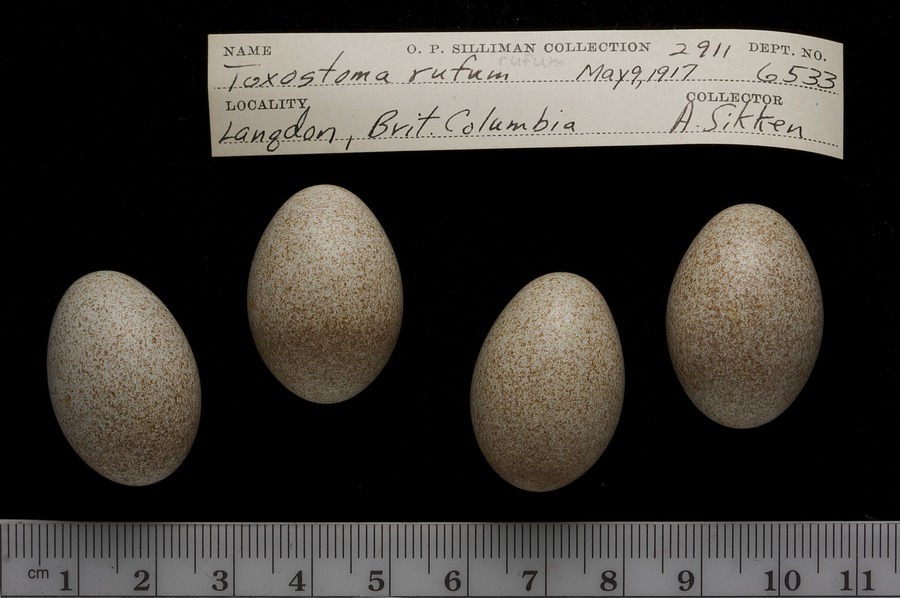 NAME O. P. SILLIMAN COLLECTION 2911 DEPT. NO.
rufum
Toxostoma rufum May 9, 1917 6533
LOCALITY COLLECTOR
Langdon, Brit. Columbia A. Sikken
cm 1 2 3 4 5 6 7 8 9 10 11